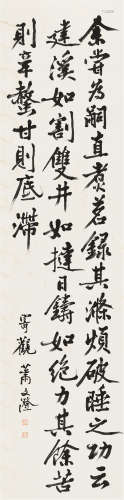 余嘗為嗣直瀹茗錄其滌煩破睡之功云
建溪如割雙井如撻日鑄如絕力其餘苦
則辛螫甘則底滯
寄觀蕭立澄